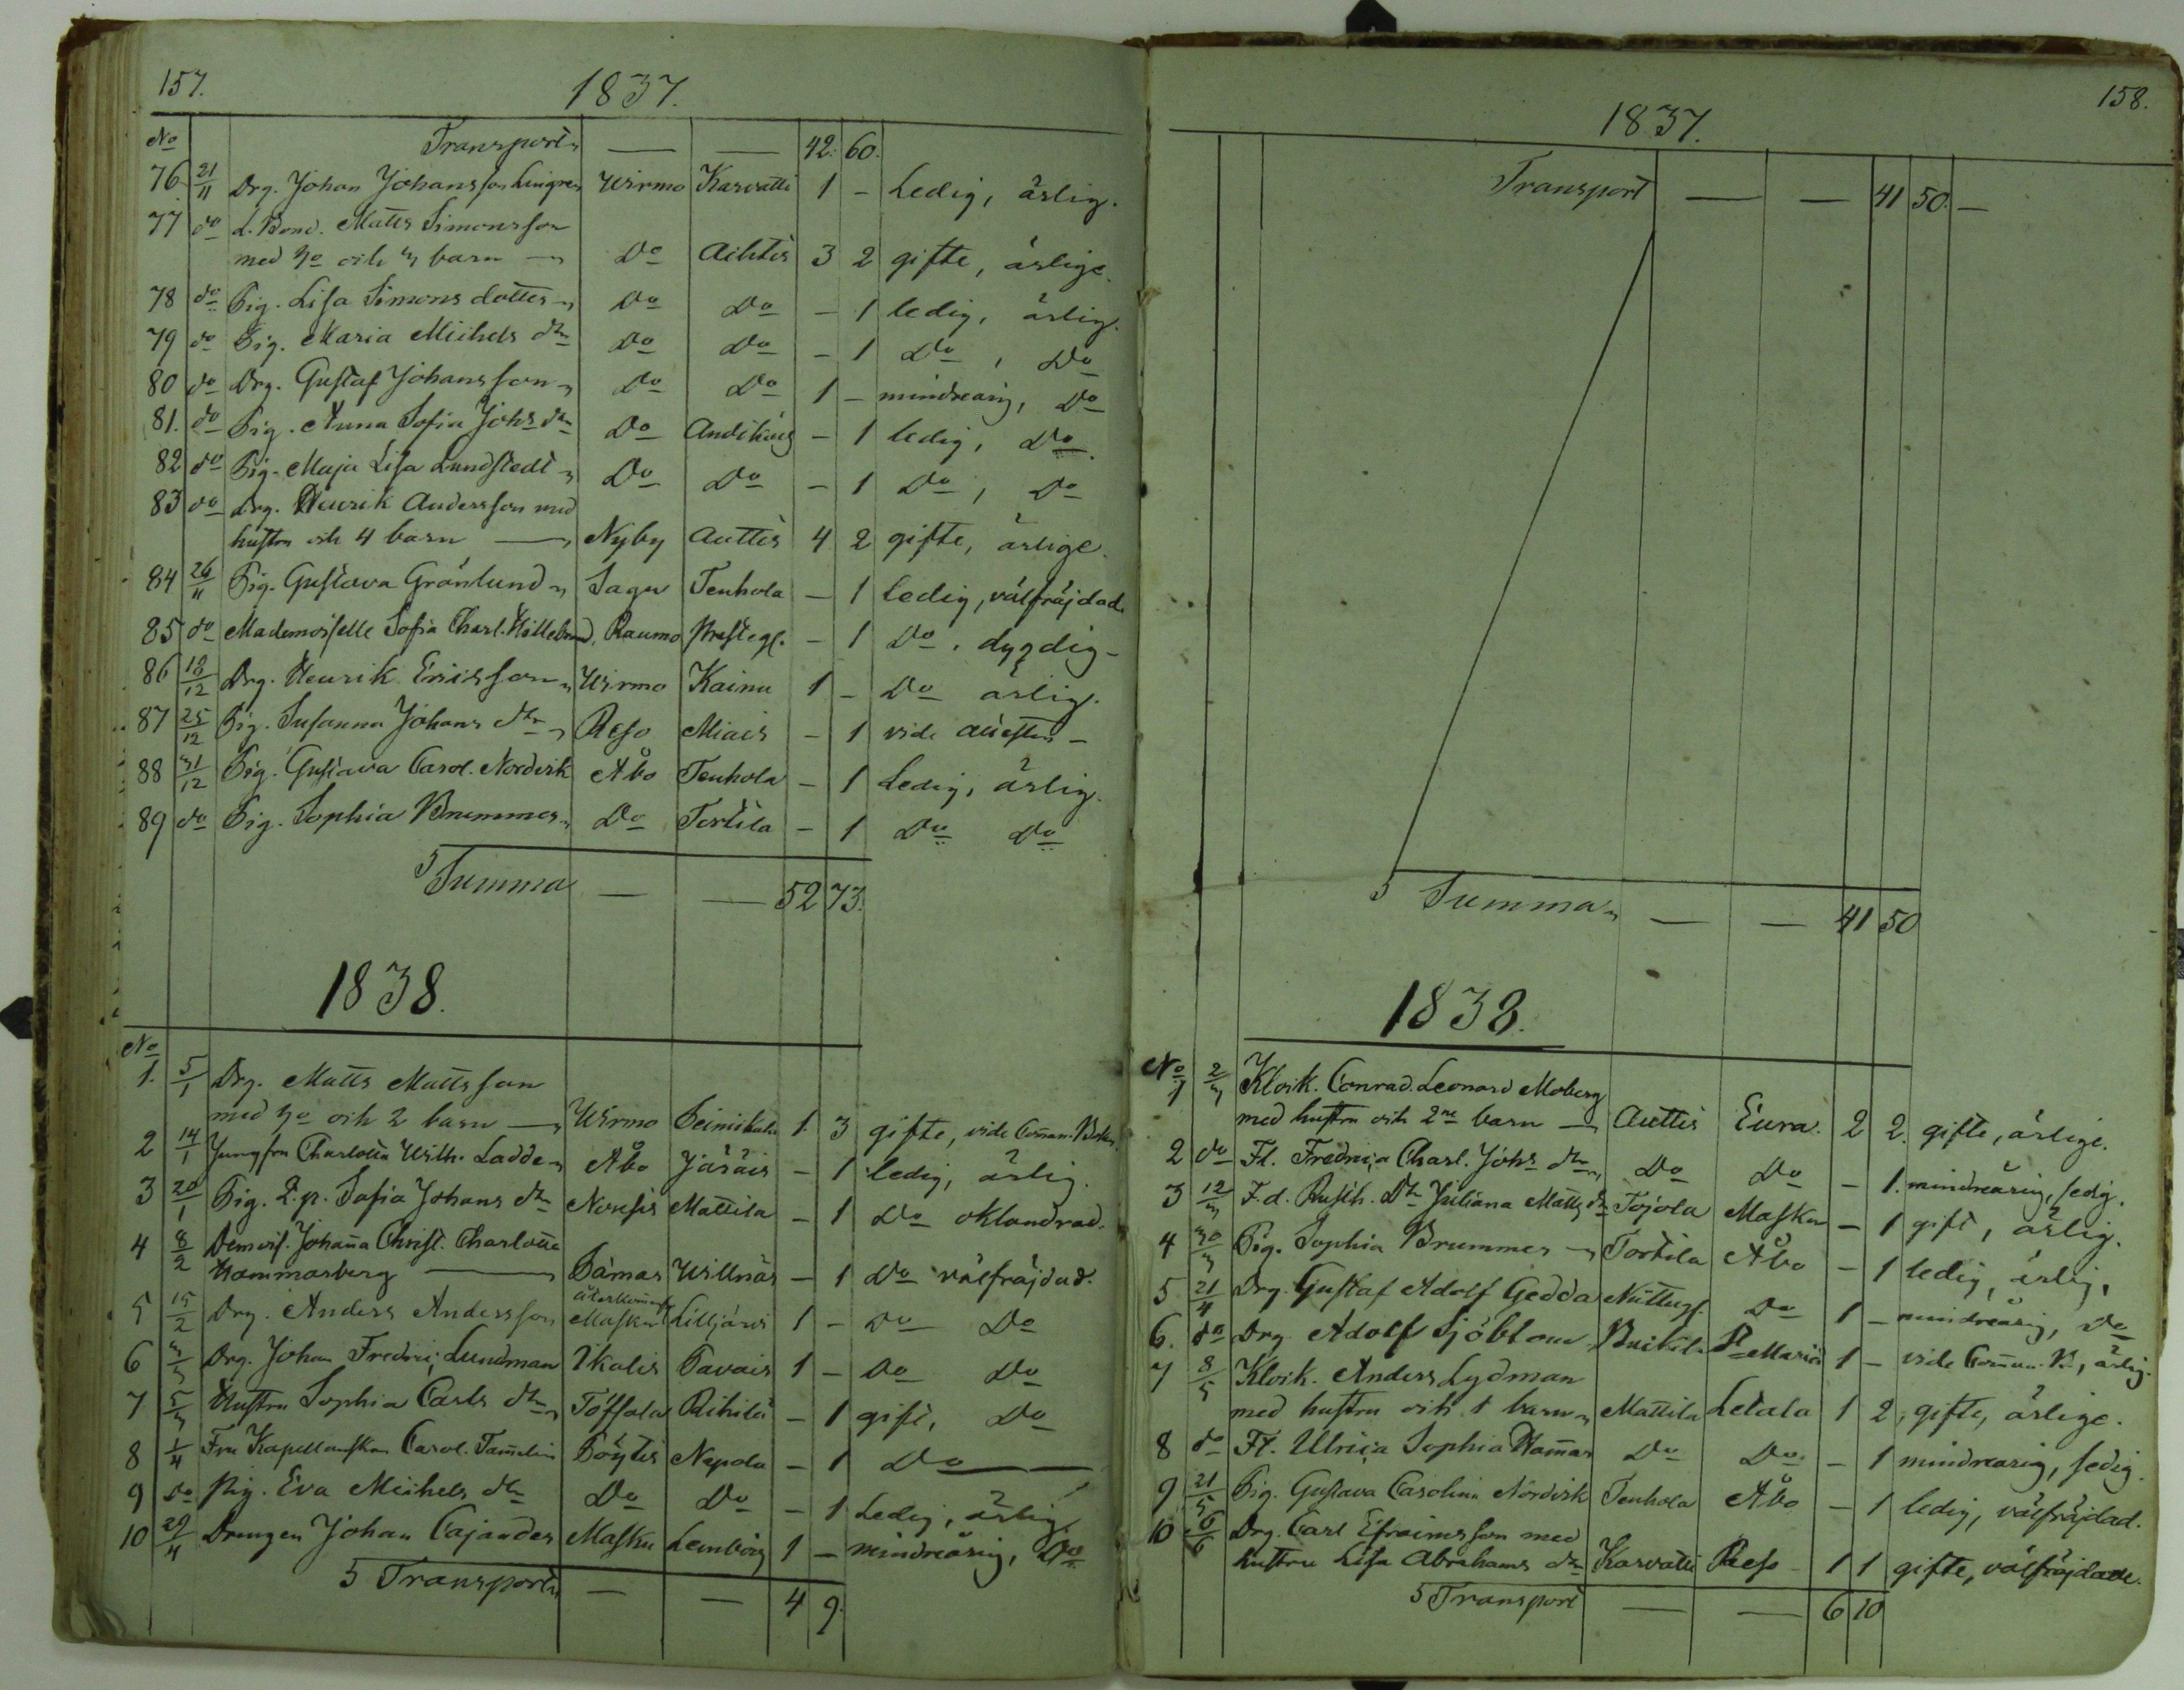 157.
1837.
No Transport — — 42. 60.
76 21/11 Drg. Johan Johansson Lingren Wirmo Karvatti 1 – Ledig, ärlig.
77 do L. Bond. Matts Simonsson
med h:o och 3 barn — Do Aihtis 3 2 gifte, ärlige.
78 do Pig. Lisa Simons dotter Do Do – 1 ledig, ärlig.
79 do Pig. Maria Michels dtr Do Do – 1 Do, Do
80 do Drg. Gustaf Johansson Do Do 1 – mindreårig, Do
81. do Pig. Anna Sofia Johs dtr Do – 1 ledig, Do.
82 do Pig. Maja Lisa Lundstedt Do Do – 1 Do, Do
83 do Drg. Henrik Andersson med
hustru och 4 barn — Nyby Auttis 4 2 gifte, ärlige.
84 26/11 Pig. Gustava Grönlund Sagu Tenhola – 1 ledig, välfräjdad.
85 do Mademoiselle Sofia Charl. Raumo Presteg. – 1 Do, dygdig –
86 Drg. Henrik Ericsson Wirmo Kainu 1 – Do ärlig.
87 25/12 Pig. Susanna Johans dtr Reso Miais – 1 vide
88 31/12 Pig. Gustava Carol. Nordvik Åbo Tenhola – 1 Ledig, ärlig.
89 do Pig. Sophia Brummer Do Tortila – 1 Do Do
Summa — — 52 73.
1838.
No
1. 5/1 Drg. Matts Mattsson
med h:o och 2 barn — Wirmo 1. 3 gifte, vide
2 14/1 Jungfru Charlotta Wilh. Ladde Åbo Järäis – 1 ledig, ärlig.
3 20/1 Pig. Sofia Johans dtr Nousis Mattila – 1 Do oklandrad.
4 8/2 Demois. Johanna Christ. Charlotta
Hammarberg — Pämar Willnäs – 1 Do välfräjdad.
5 15/2 Drg. Anders Andersson Masku Lilljärvi 1 – Do Do
6 3/3 Drg. Johan Fredric Lundman Ikalis Pavais 1 – Do Do
7 5/3 Hustru Sophia Carls dtr Töffala – 1 gift, Do
8 1/4 Fru Kapellanskan Carol. Tamelin Pöytis Nepola – 1 Do —
9 Do Pig. Eva Michels dtr Do Do – 1 Ledig, ärlig.
10 29/4 Drengen Johan Cajander Masku Lemberg 1 – mindreårig, Do
Transport — — 4 9.
158.
1837.
Transport — — 41 50. –
Summa — — 41 50
1838.
No
1 2/3 Klock. Conrad Leonard Moberg
med hustru och 2ne barn — Auttis Eura. 2 2. gifte, ärlige.
2 do Fl. Fredrica Charl. Johs dtr Do Do – 1. mindreårig, sedig.
3 12/3 F.d. Rusth. Dtr Juliana Matts dtr Tojola Masku – 1 gift, ärlig.
4 30/3 Pig. Sophia Brummer — Tortila Åbo – 1 ledig, ärlig,
5 21/4 Drg. Gustaf Adolf Gedda Do 1 – mindreårig, Do
6. do Drg. Adolf Sjöblom St Marie 1 – vide Commun. B., ärlig.
7 8/5 Klock. Anders Lydman
med hustru och 1 barn Mattila Letala 1 2, gifte, ärlige.
8 do Fl. Ulrica Sophia Hammar Do Do. – 1 mindreårig, sedig.
9 21/5 Pig. Gustava Carolina Nordvik Tenhola Åbo – 1 ledig, välfräjdad.
10 6/6 Drg. Carl Efraimsson med
hustru Lisa Abrahams dtr Karvatti Reso – 1 1 gifte, välfräjdade.
Transport — — 6 10